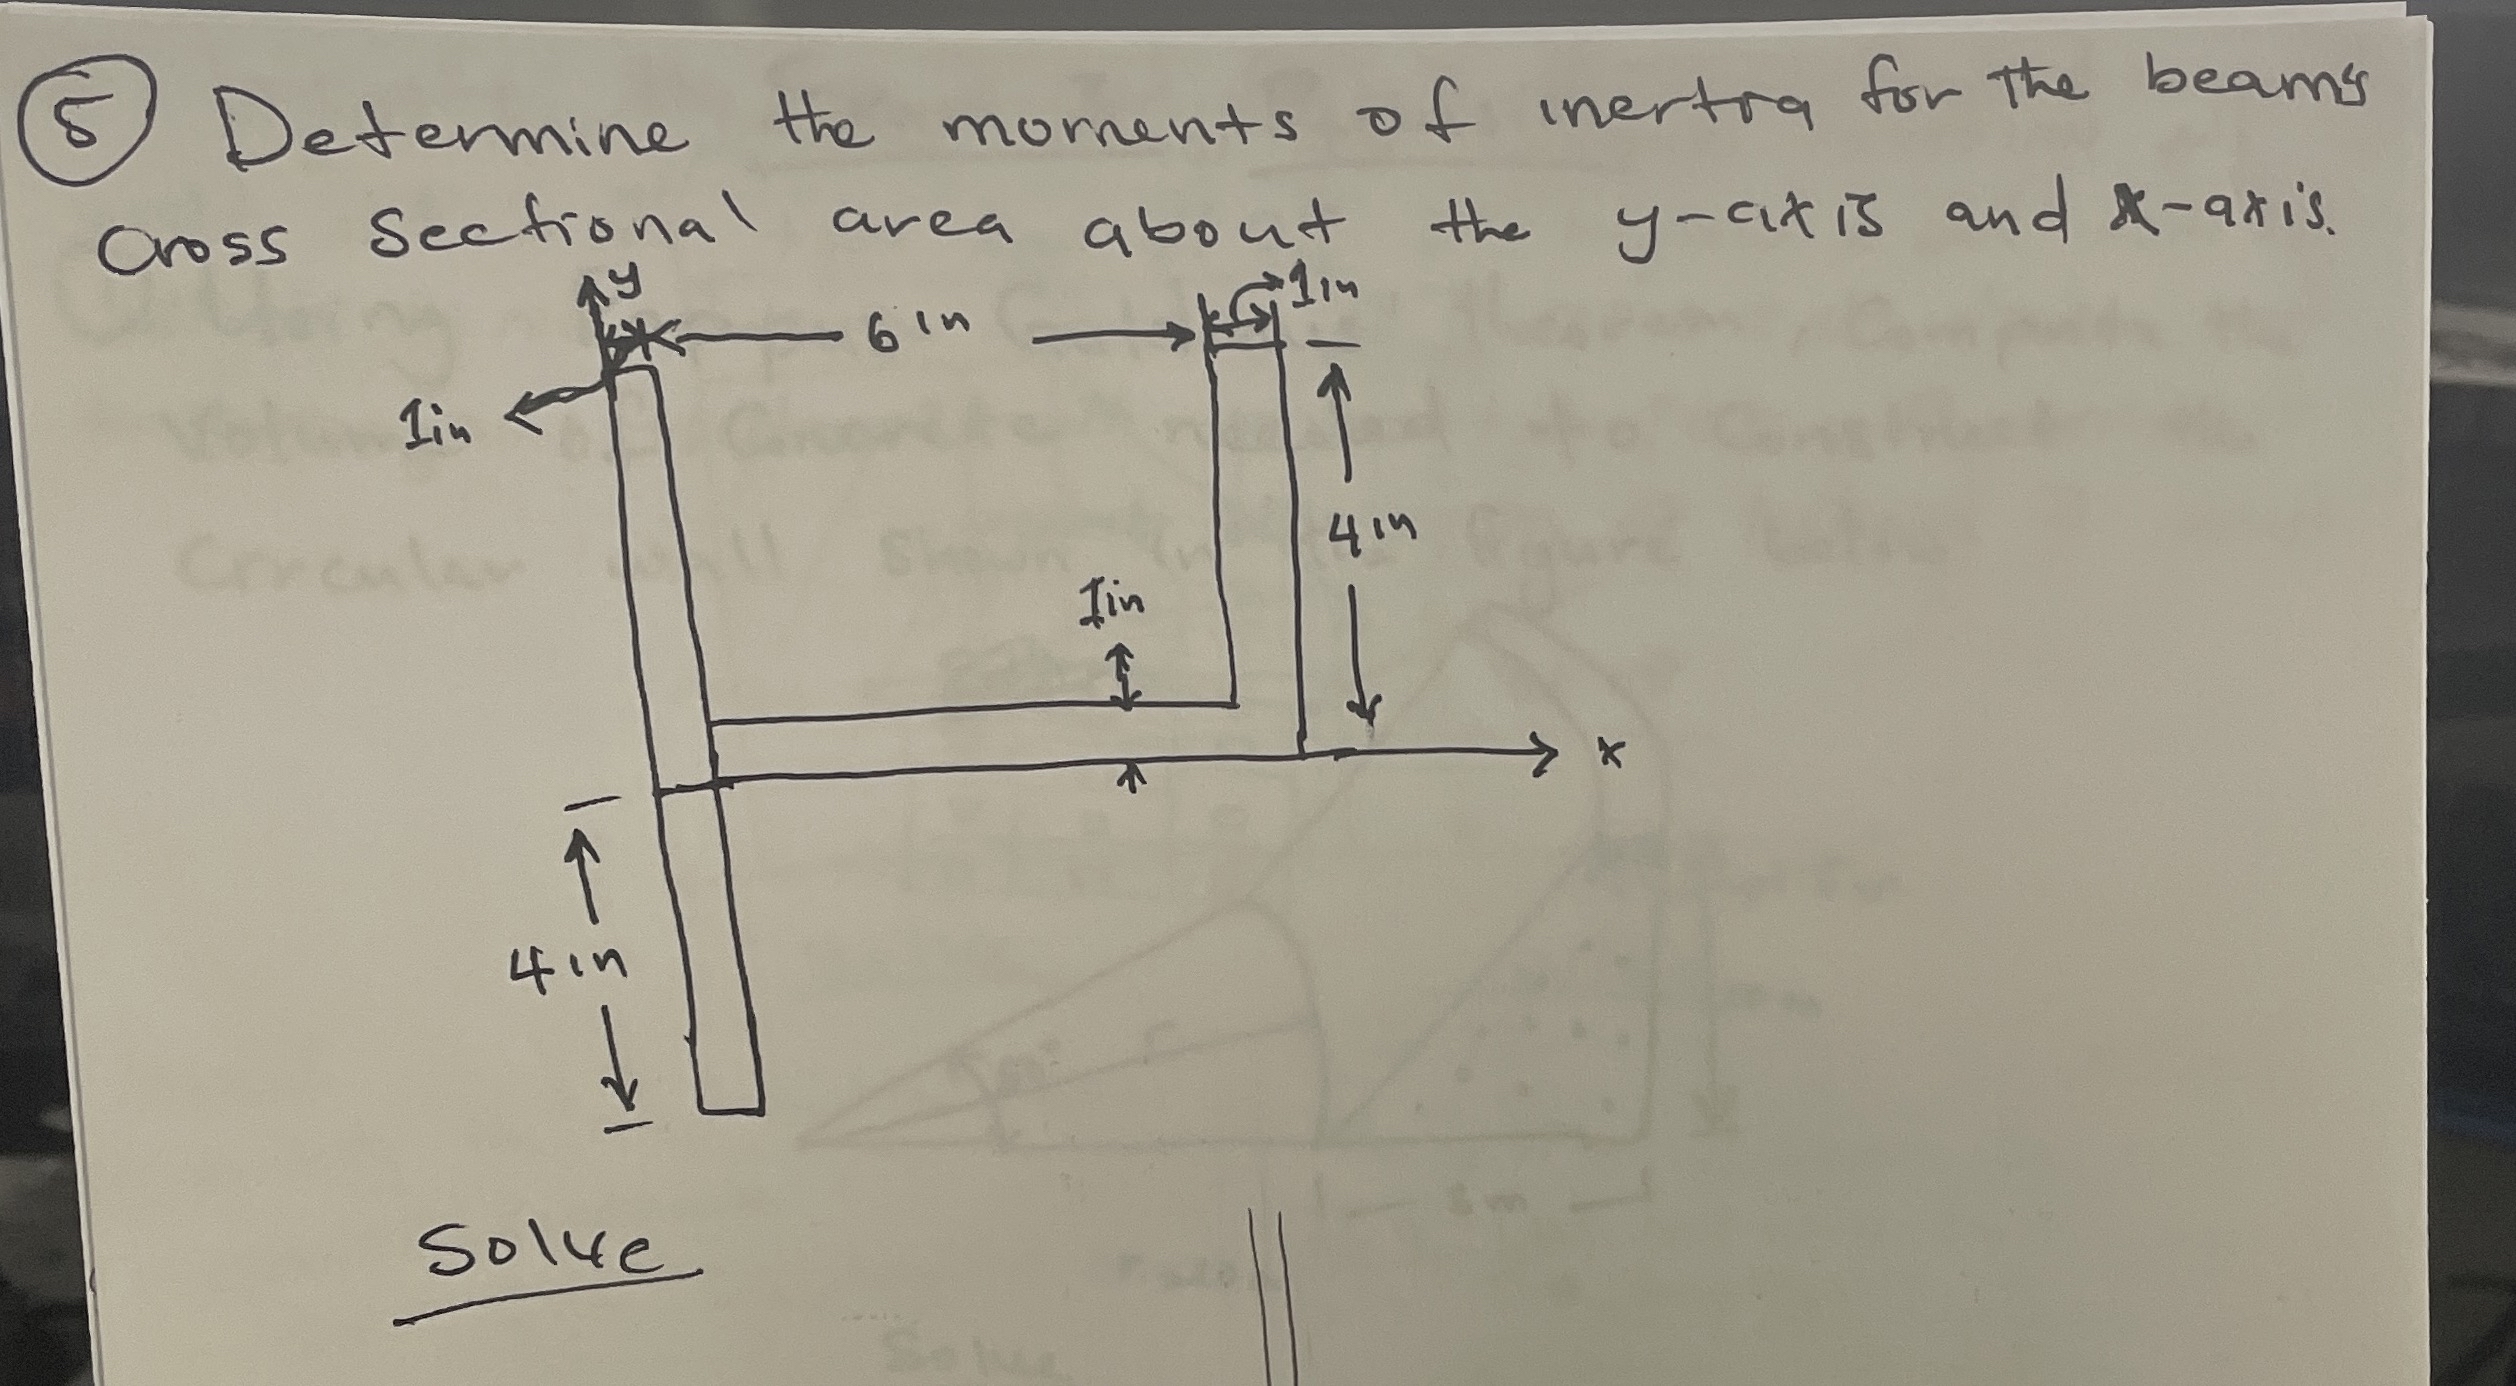 5 Determine the moments of inertia for the beam's
cross sectional area about the y-axis and x-axis.
y
1in
6 in
1in
4 in
1in
x
4 in
Solve